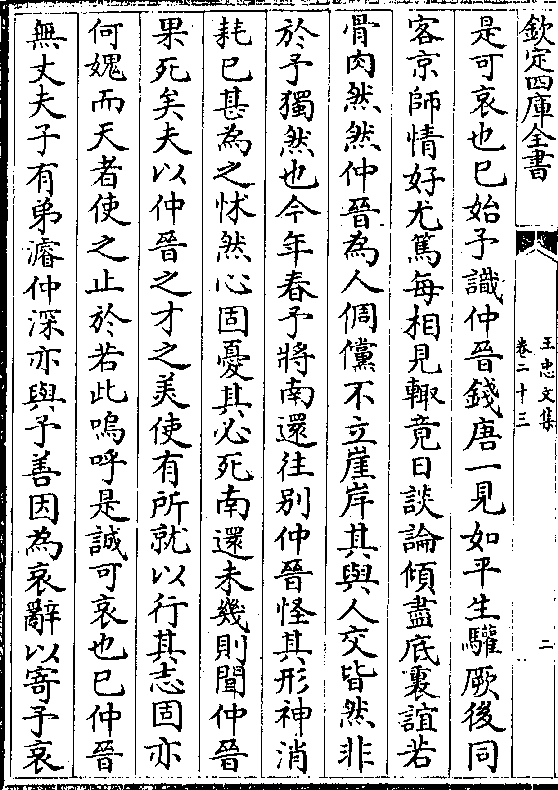 欽定四庫全書
王忠文集
卷二十三
二
是可哀也已始予識仲晉錢唐一見如平生驩厥後同
客京師情好尤篤每相見輙竟日談論傾盡底裏誼若
骨肉然然仲晉為人倜儻不立崖岸其與人交皆然非
於予獨然也今年春予將南還往別仲晉怪其形神消
耗已甚為之怵然心固憂其必死南還未幾則聞仲晉
果死矣夫以仲晉之才之美使有所就以行其志固亦
何媿而天者使之止於若此嗚呼是誠可哀也已仲晉
無丈夫子有弟濬仲深亦與予善因為哀辭以寄予哀